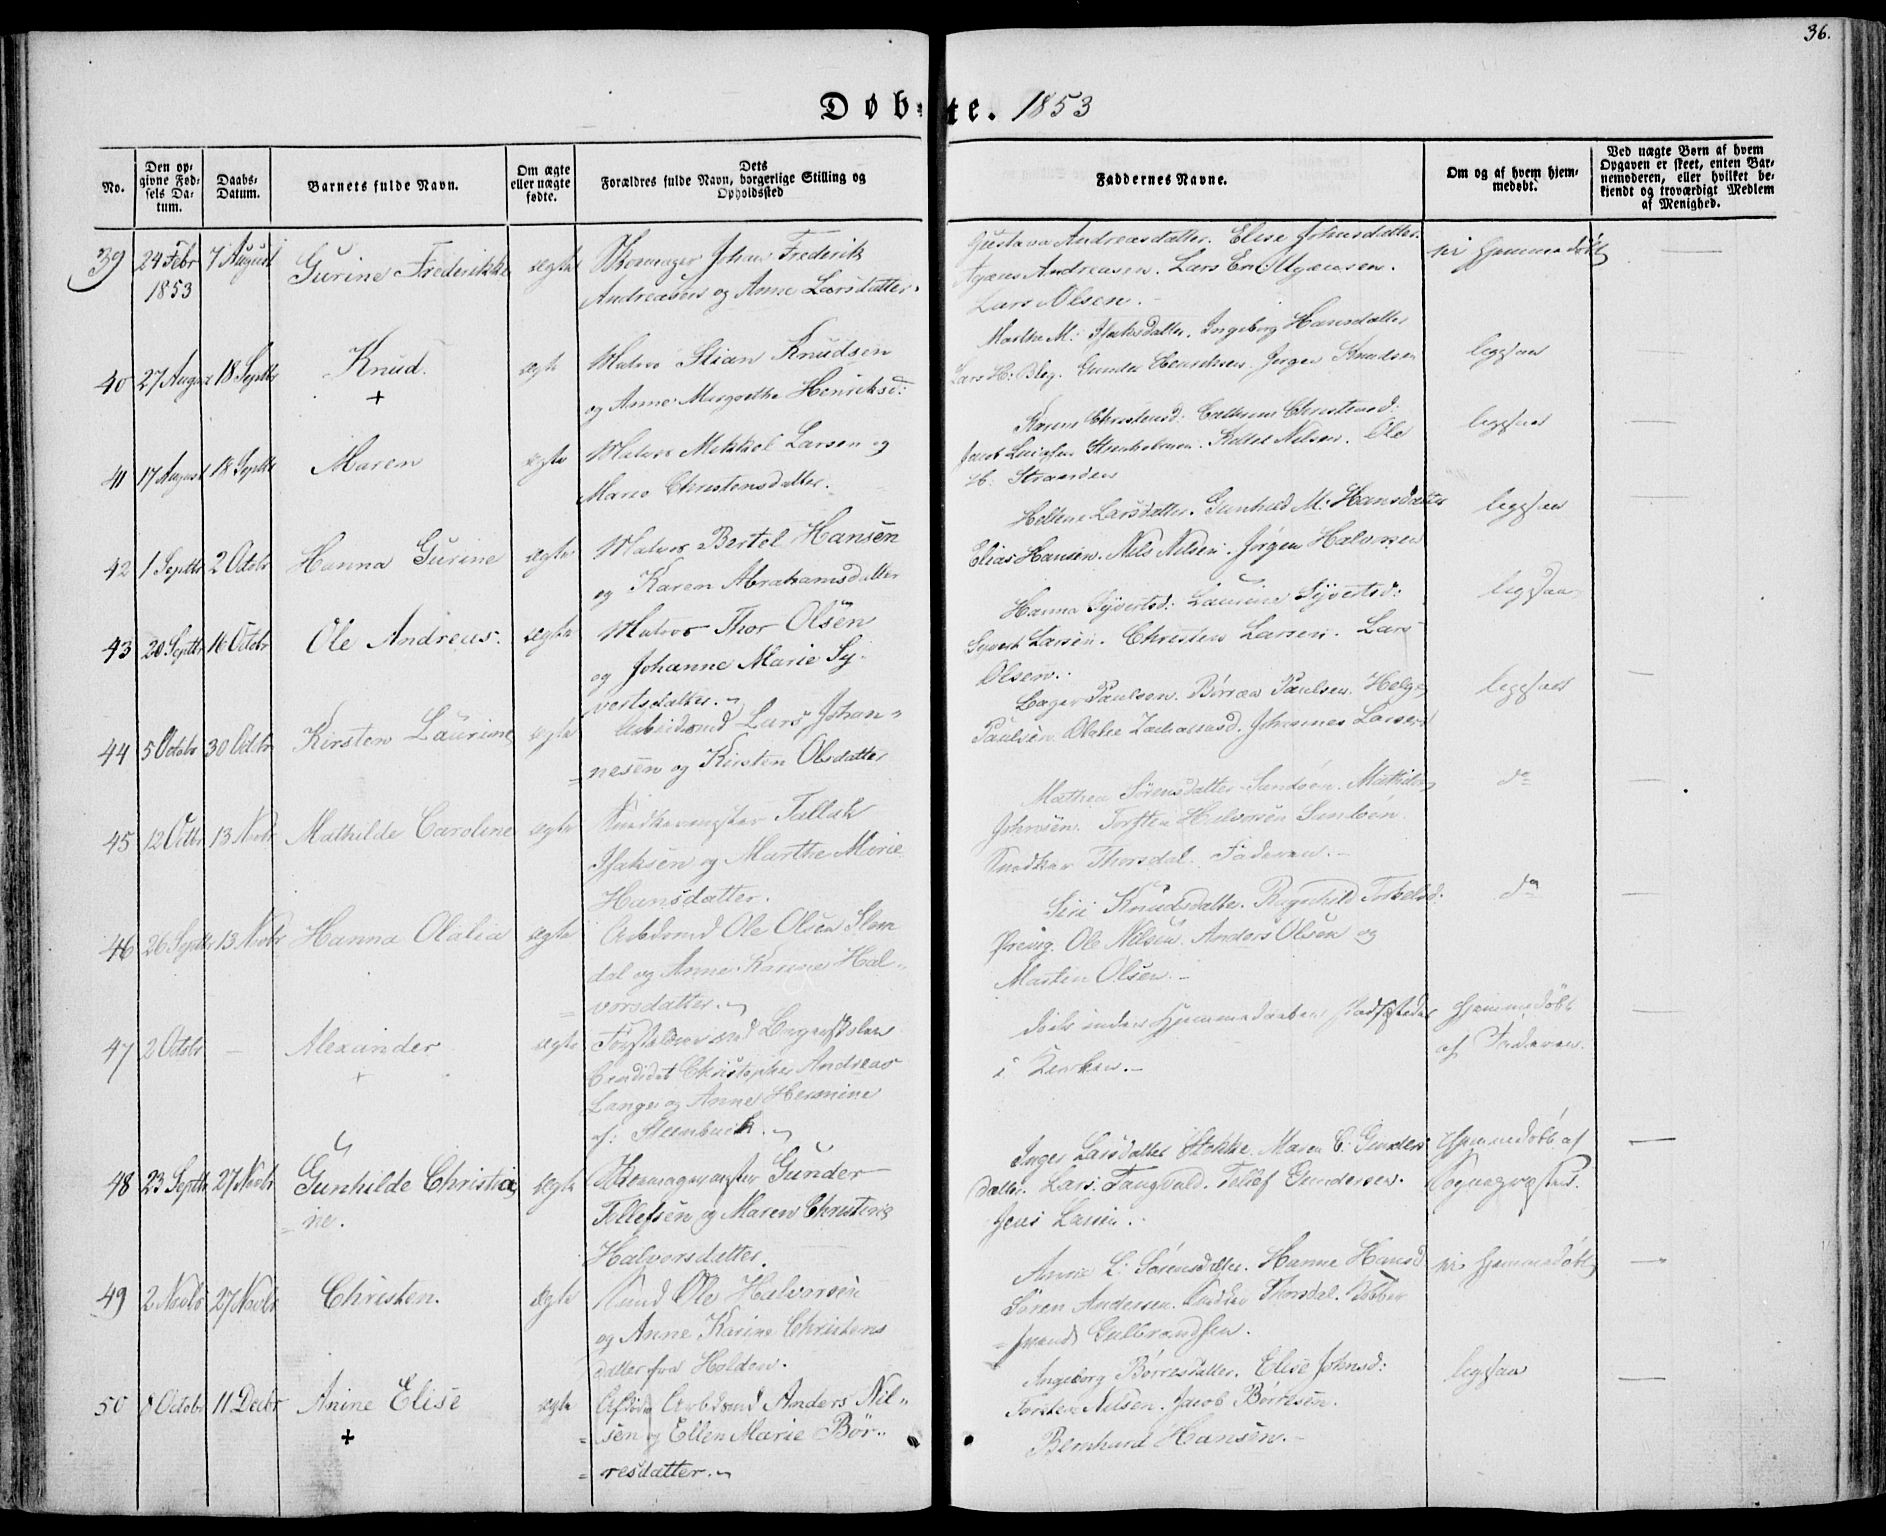 36.
Døbte. 1853
No.
Den opgivne Fødsels Datum.
Daabs-Datum.
Barnets fulde Navn.
Om ægte eller uægte fødte.
Dets Forældres fulde Navn, borgerlige Stilling og Opholdssted
Faddernes Navne.
Om og af hvem hjemmedøbt.
Ved uægte Børn af hvem Opgaven er skeet, enten Barnemoderen, eller hvilket bekjendt og troværdigt Medlem af Menighed.
39 24 Febr 1853 7 August Gurine Frederikke ægte
Skomager Johan Frederik
Andreasen og Anne Larsdatter.
Gustava Andreasdatter. Elise Johnsdatter.
Andreasen. Lars
Lars Olsen.
hjemmedøbt
40 27 August 18 Septbr Knud. + ægte
Matros Stian Knudsen
og Anne Margrethe Henriksd:
Marthe M: Isaksdatter. Ingeborg Hansdatter
Lars H: Bleg. Gunder Henriksen. Jørgen Knudsen
ligesaa
41 17 August 18 Septbr Maren ægte
Matros Mekkel Larsen og
Maren Christensdatter.
Karen Christensd: Cathrine Christensd:
Jacob Kittel Nilsen. Ole
H: Straanden
ligesaa
42 1 Septbr 2 Octbr Hanna Gurine ægte
Matros Bertel Hansen
og Karen Abrahamsdatter
Hellene Larsdatter. Gunhild M. Hansdatter
Elias Hansen. Nils Nilsen. Jørgen Halvorsen
ligesaa
43 20 Septbr 16 Octbr Ole Andreas. ægte
Matros Thor Olsen
og Johanne Marie Sy-
vertsdatter.
Hanna Syvertsd: Laurine Syvertsd:
Syvert Larsen. Christen Larsen. Lars
Olsen.
ligesaa
44 5 Octbr 30 Octbr Kirsten Laurine ægte
Arbeidsmd Lars Johan-
nesen og Kirsten Olsdatter
Paulsen. Børræa Paulsen. Helge
Paulsen. Zachariasd. Johannes Larsen
ligesaa
45 12 Octbr 13 Novbr Mathilde Caroline ægte
Snedkermester Tallak
Isaksen og Marthe Marie
Hansdatter.
Mathea Sørensdatter Sandøen. Mathilde
Johnsen. Torsten Halvorsen Sandøen.
Snedker Thorsdal. Faderen.
do
46 26 Septbr 13 Novbr Hanna Olalia ægte
Arbdsmd Ole Olsen Slem
dal og Anne Karine Hal-
vorsdatter.
Siri Knudsdatter. Ragnhild Torkelsd.
Ørevig. Ole Nilsen. Anders Olsen og
Martin Olsen.
do
47 2 Octbr — Alexander + ægte
Candidat Christopher Andreas
Lange og Anne Hermine
af: Steenbuck.
døde inden Hjemmedaaben stadfæstedes
i Kirken.
Hjemmedøbt
af Faderen.
48 23 Septbr 27 Novbr Gunhilde Christia-
ne. ægte
Skomagermester Gunder
Tollefsen og Maren Christine
Halvorsdatter.
Inger Larsdatter Stokke. Maren C. Gunders
datter. Lars Fangvald. Tollef Gundersen.
Jens Larsen.
Hjemmedøbt af
Sognepræsten.
49 2 Novbr 27 Novbr Christen. ægte
Ole Halvorsen
og Anne Karine Christens
datter fra Holden.
Anne L. Sørensdatter. Hanne Hansd.
Søren Andersen. Snedker Thorsdal. Kobber
smed Gulbrandsen.
hjemmedøbt
50 8 Octbr 11 Decbr Anine Elise + ægte
Afdøde Arbdsmd Anders Nil-
sen og Ellen Marie Bør-
resdatter.
Ingeborg Børresdatter. Elise Johnsd:
Torsten Nilsen. Jacob Børresen.
Bernhard Hansen.
ligesaa